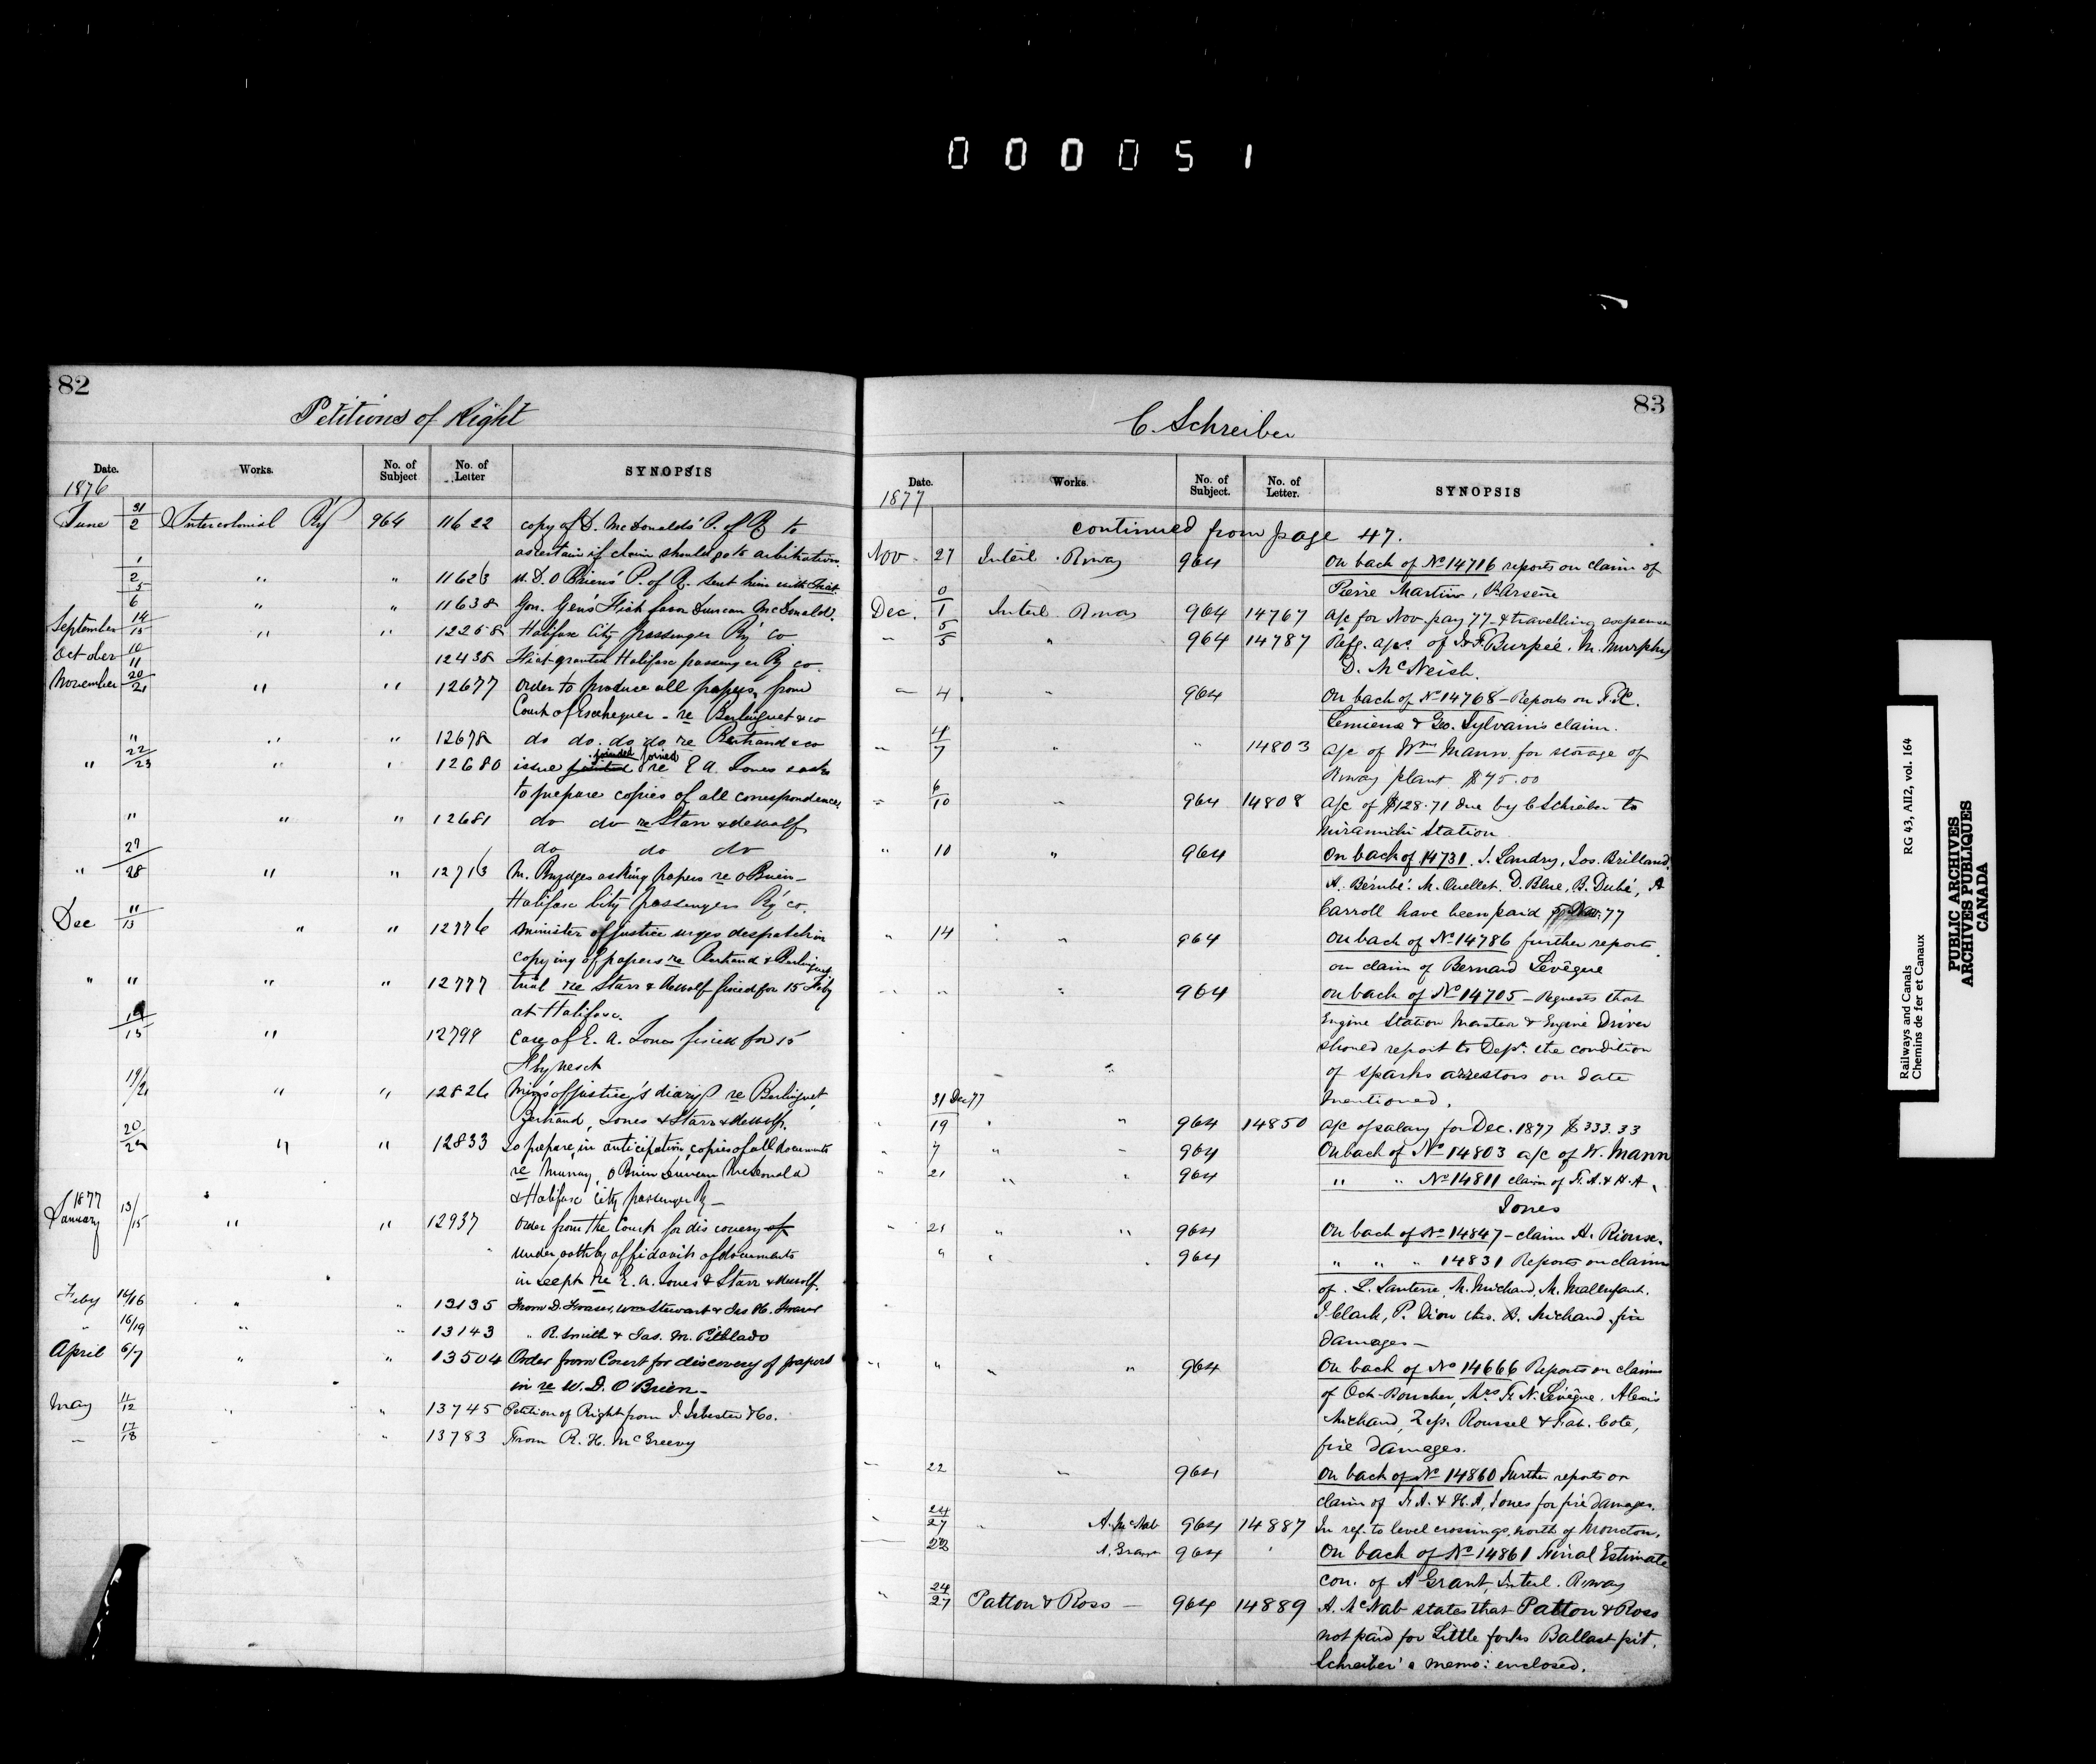 000051
82
Petitions of Right
Date. Works. No. of Subject No. of Letter SYNOPSIS
1876
June 31/2 Intercolonial Ry 964 11622 copy of D. McDonalds' P. of R to
ascertain if claim should go to arbitration.
1/2 " " 11623 W. D. O Briens' P. of R. sent him with Fiat
5/6 " " 11638 Gov. Gens' Fiat favor Duncan McDonald.
September 14/15 " " 12258 Halifax City passenger Ry' Co
October 10/11 12438 Fiat granted Halifax passenger Ry co.
November 20/21 " " 12677 Order to produce all papers, from
Court of Exchequer - re Berlinguet & co
" " " 12678 do do. do do re Bertrand & co
" 22/23 " " 12680 issue joined re E A. Jones asks
to prepare copies of all correspondence
" " " 12681 do do re Starr & deWolf
do do do
" 27/28 " " 12713 M. Brydges asking papers re O Brien -
Halifax City passenger Ry' co.
Dec 11/13 " " 12776 Minister of justice urges despatch in
copying of papers re Bertrand & Berlinguet
" " " " 12777 trial re Starr & deWolf fixed for 15 Feby
at Halifax.
14/15 " 12799 Case of E. A. Jones fixed for 15
Feby next
19/21 " " 12826 Min's of justice's diary re Berlinguet,
Bertrand, Jones & Starr & deWolf.
20/22 " " 12833 To prepare, in anticipation, copies of all documents
re Murray, O Brien Duncan McDonald
& Halifax City passenger Ry -
1877
January 13/15 " " 12937 Order from the Court for discovery of
under oath by affidavit of documents
in Suppt re E. A. Jones & Starr & deWolf.
Feby 14/16 " " 13135 From D. Fraser, Wm Stewart & Jas H. Fraser
" 16/19 " " 13143 " R. Smith & Jas. M. Pitblado
April 6/7 " " 13504 Order from Court for discovery of papers
in re W. D. O'Brien -
May 11/12 " " 13745 Petition of Right from J. Isbester & Co.
" 17/18 " " 13783 From R. H. McGreevy
83
C. Schreiber
Date. Works. No. of Subject. No. of Letter. SYNOPSIS
1877
continued from page 47.
Nov 27 Intcol. Rway 964 On back of No 14716 reports on claim of
Pierre Martin, St Arsene
Dec. 0/1 Intcol. Rway 964 14767 a/c for Nov. pay 77 & travelling expenses
" 5/5 " 964 14787 Resg. a/cs. of I. F. Burpee. M. Murphy
D. McNeish.
" 4 " 964 On back of No 14768 - Reports on F. X.
Lemieux & Geo. Sylvain's claim.
" 4/7 " " 14803 a/c of Wm Mann for storage of
Rway plant $75.00
" 6/10 " 964 14808 a/c of $128.71 due by C Schreiber to
Miramichi Station
" 10 " 964 On back of 14731. J. Landry, Jos. Brilland
A. Bérubé. M. Ouellet. D. Blue, B. Dubé, A
Carroll have been paid Nov. 77
" 14 " 964 On back of No 14786 further reports
on claim of Bernard Levêque
" " " 964 On back of No 14705 - Requests that
Engine Station Master & Engine Driver
should report to Dept. the condition
of sparks arrestors on date
mentioned.
31 Dec 77
19 " 964 14850 a/c of salary for Dec. 1877 $333.33
" 7 " " 964 On back of No 14803 a/c of W. Mann
" 21 " " 964 " " No 14811 claim of F. A. & H. A.
Jones
" 21 " " 964 On back of No 14847 - claim A. Rioux.
" " " 964 " " " 14831 Reports on claims
of L. Santerre, M. Michaud, M. Mallenfant.
J. Clark, P. Dion chs. B. Michaud. fire
damages -
" " " " 964 On back of No 14666 Reports on claims
of Oct. Boucher, Mrs F. N. Levêque. Alexis
Michaud, Zep. Roussel & Fab. Cote,
fire damages.
" 22 " 964 On back of No 14860 Further reports on
claim of F. A. & H. A. Jones for fire damages.
" 24/27 " A. McNab 964 14887 In ref. to level crossings, north of Moncton.
" 28 A. Grant 964 On back of No 14861 Final Estimate
con. of A Grant, Intcol. Rway
" 24/27 Patton & Ross - 964 14889 A. McNab states that Patton & Ross
not paid for Little forks Ballast pit.
Schreiber's memo: enclosed.
Railways and Canals RG 43, AII2, vol. 164
Chemins de fer et Canaux
PUBLIC ARCHIVES
ARCHIVES PUBLIQUES
CANADA